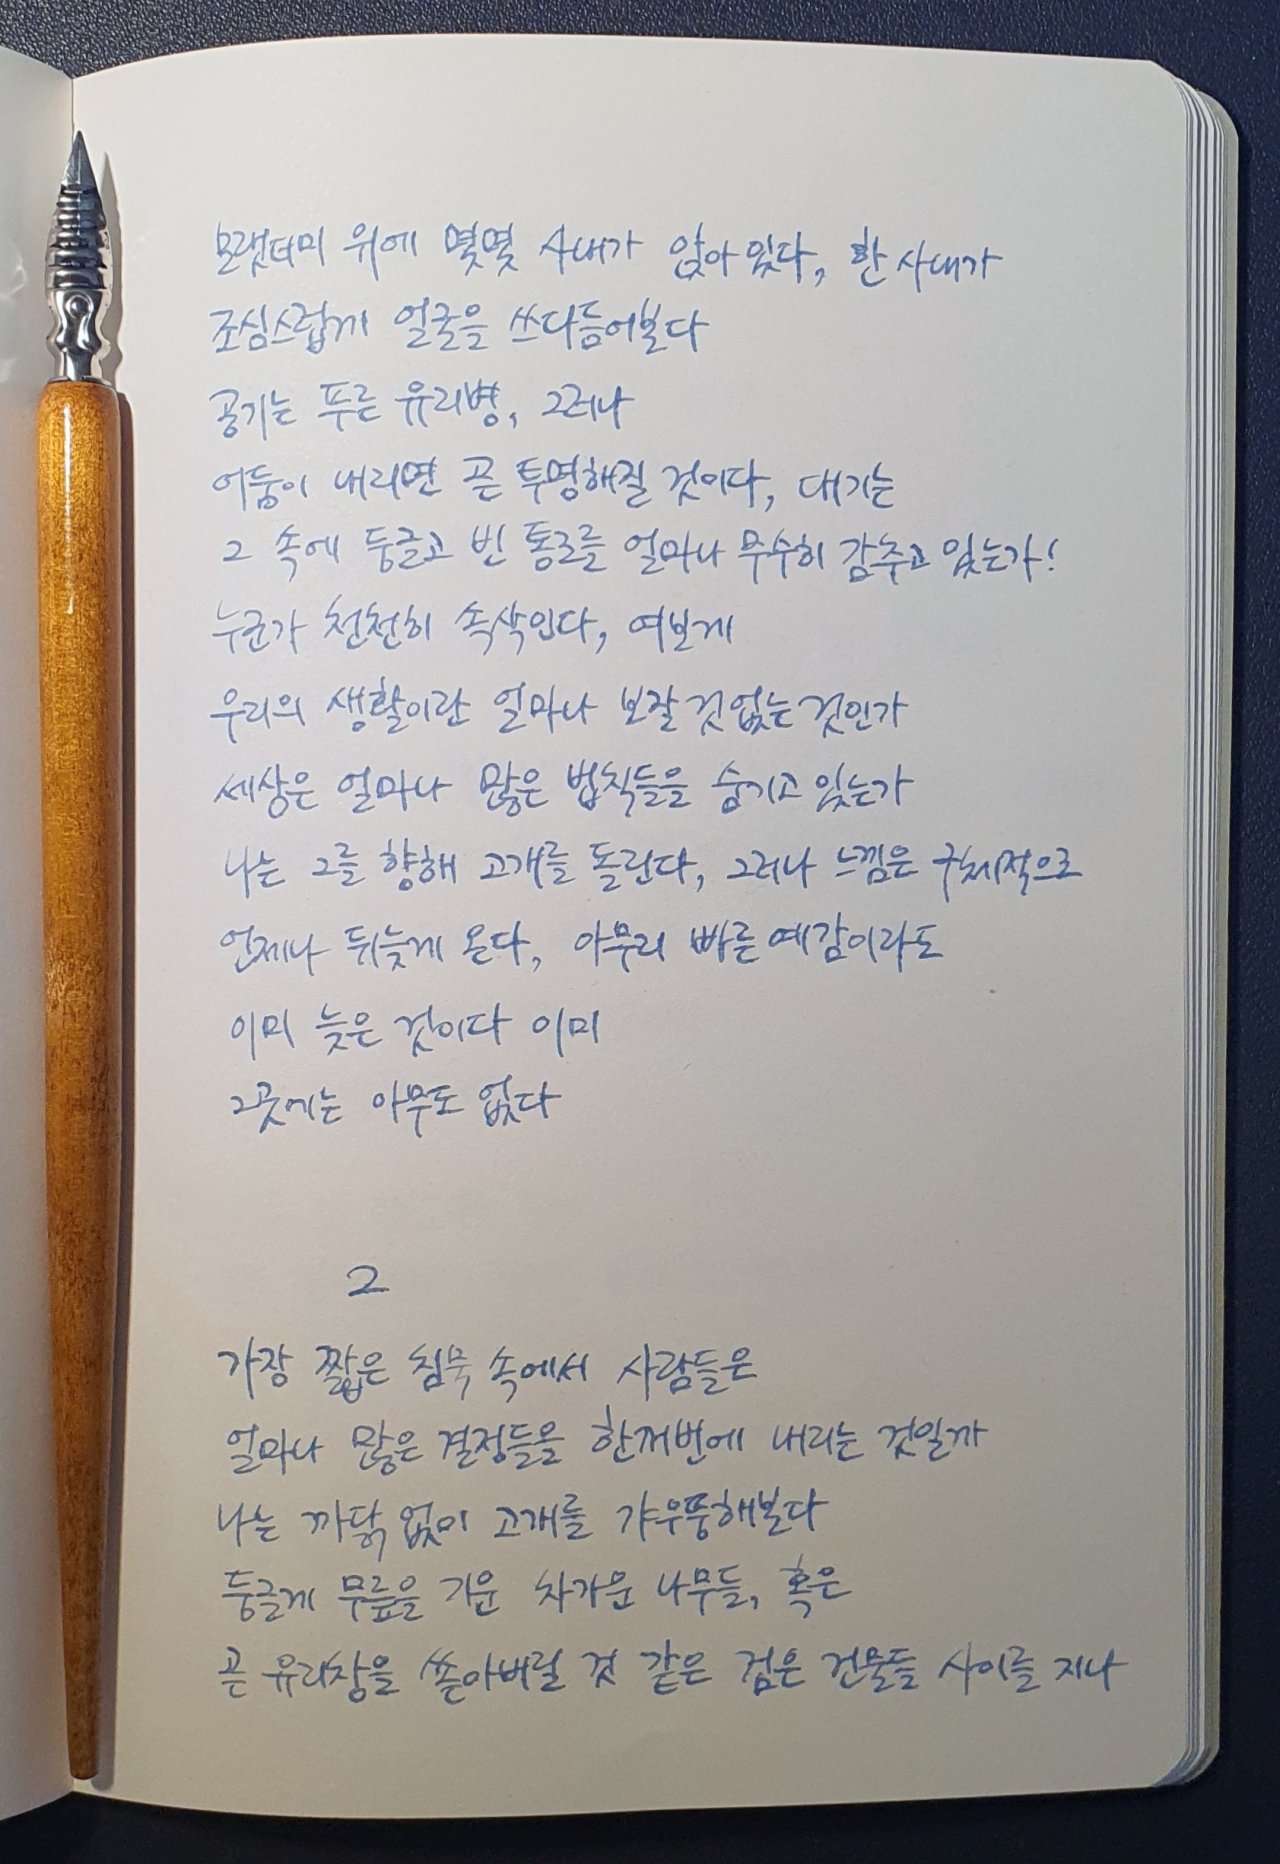 모랫더미 위에 몇몇 사내가 앉아 있다, 한 사내가
조심스럽게 얼굴을 쓰다듬어본다
공기는 푸른 유리병, 그러나
어둠이 내리면 곧 투명해질 것이다, 대기는
그 속에 둥글고 빈 통로를 얼마나 무수히 감추고 있는가!
누군가 천천히 속삭인다, 여보게
우리의 생활이란 얼마나 보잘것없는 것인가
세상은 얼마나 많은 법칙들을 숨기고 있는가
나는 그를 향해 고개를 돌린다, 그러나 느낌은 구체적으로
언제나 뒤늦게 온다, 아무리 빠른 예감이라도
이미 늦은 것이다 이미
그곳에는 아무도 없다
2
가장 짧은 침묵 속에서 사람들은
얼마나 많은 결정들을 한꺼번에 내리는 것일까
나는 까닭 없이 고개를 갸우뚱해본다
둥글게 무릎을 기운 차가운 나무들, 혹은
곧 유리창을 쏟아버릴 것 같은 검은 건물들 사이를 지나